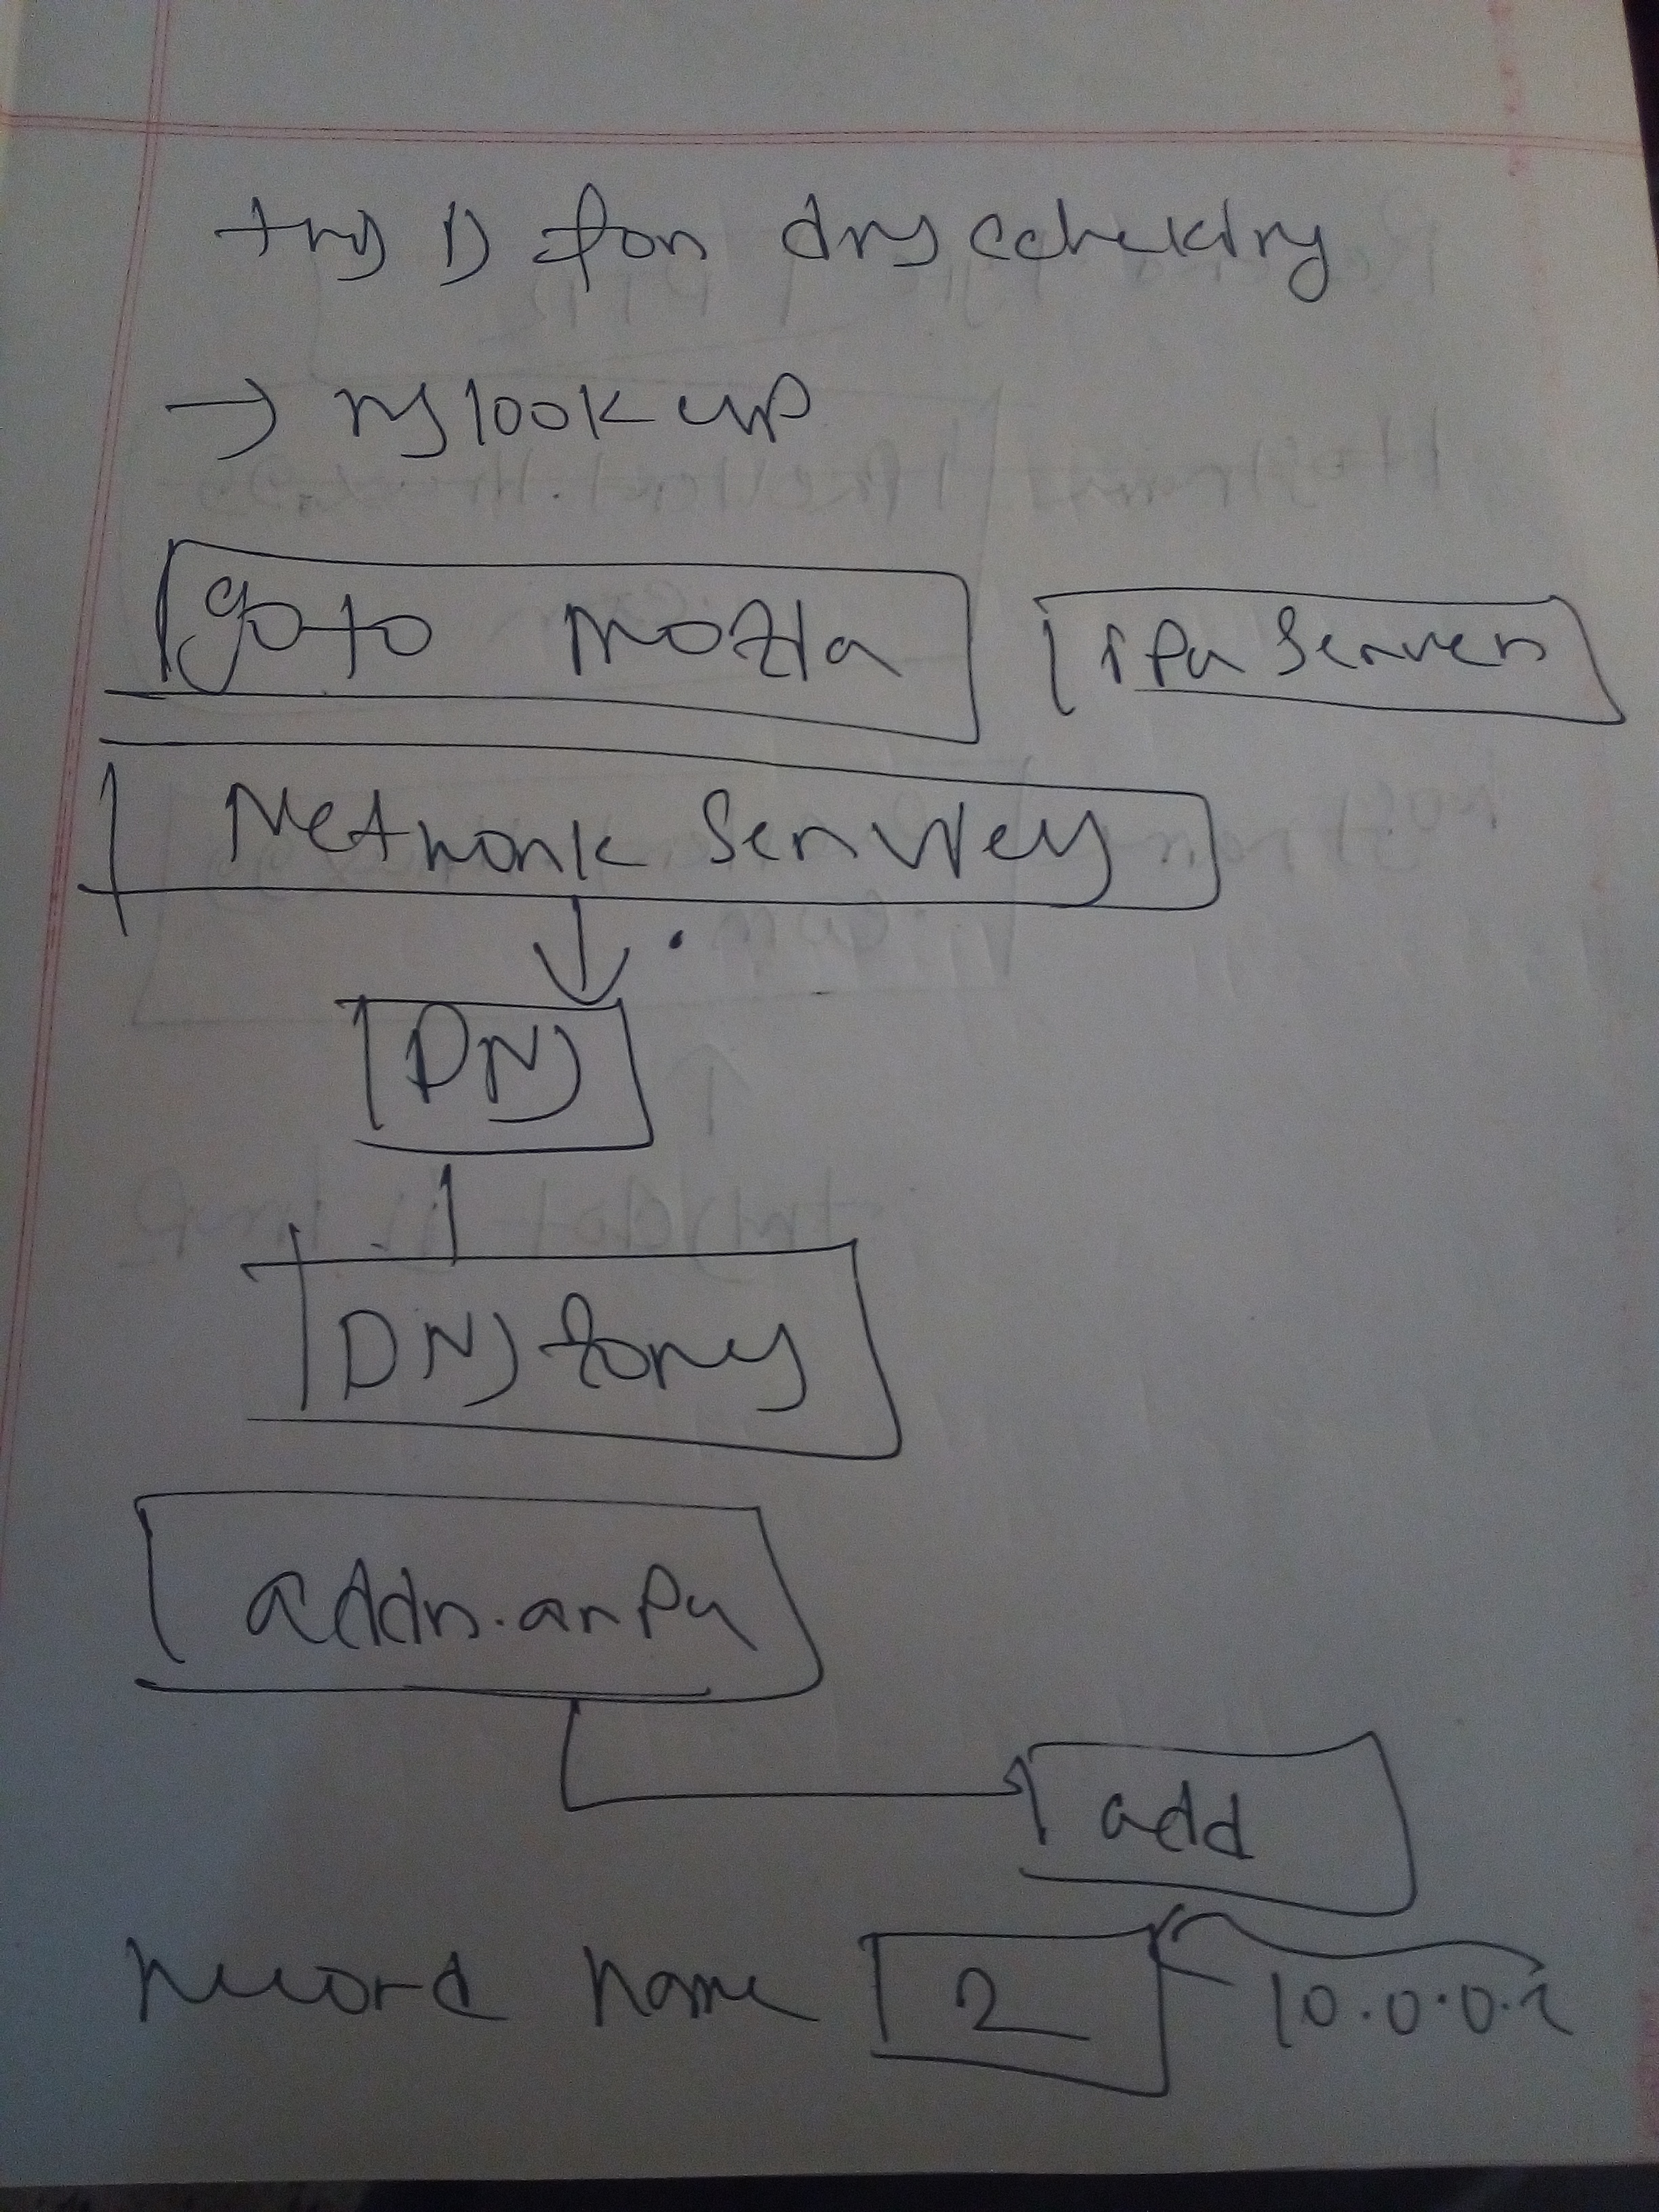 this is for dns checking
→ nslookup
go to mozla
ipa server
Network Servies
DNS
DNS Zones
addr.arpa
add
record name 2 10.0.0.2